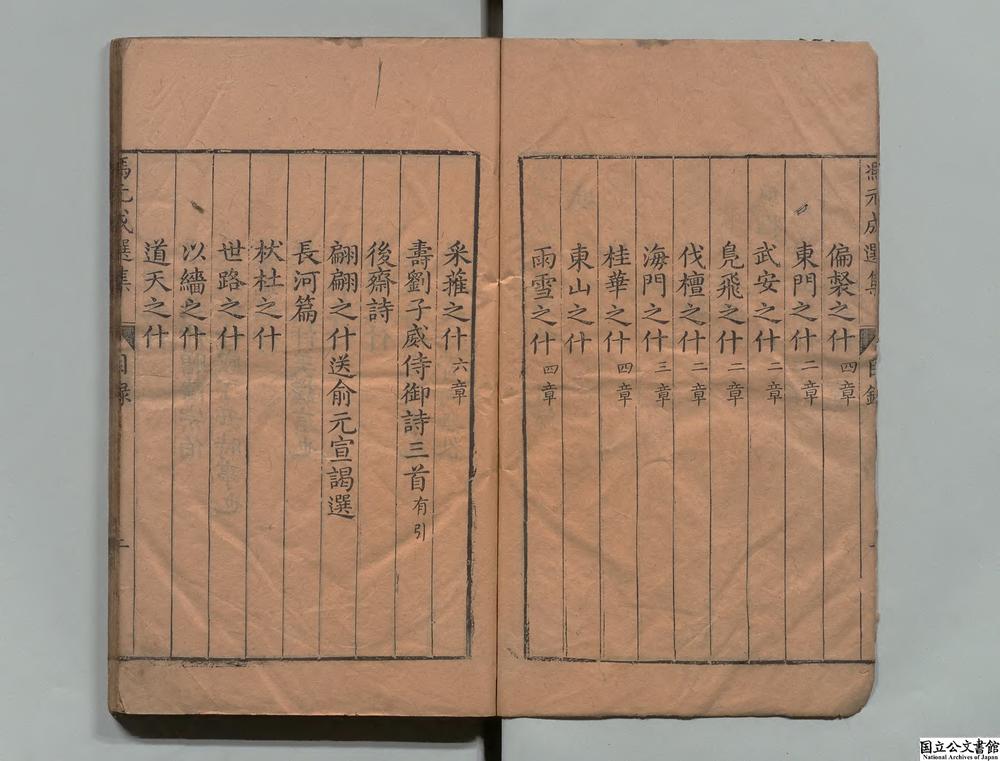 馮元成選集 目錄
偏聚之什四章
東門之什二章
武安之什二章
鳧飛之什二章
伐檀之什二章
海門之什三章
桂華之什四章
東山之什
雨雪之什四章
采蓷之什六章
壽劉子威侍御詩三首有引
後齋詩
翩翩之什送俞元宣謁選
長河篇
杕杜之什
世路之什
以繒之什
道天之什
馮元成選集 目錄 二
国立公文書館
National Archives of Japan